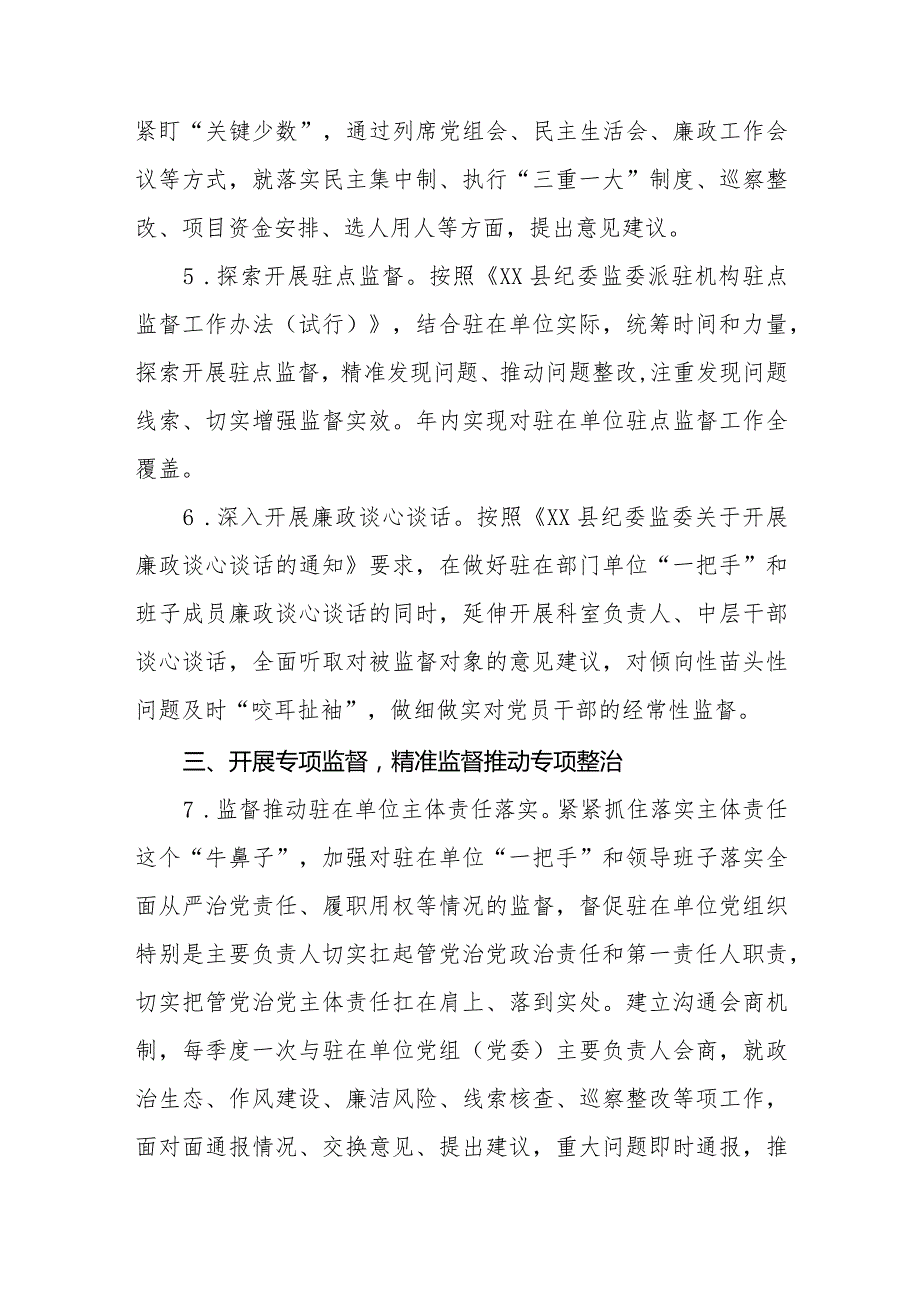 紧盯“关键少数”，通过列席党组会、民主生活会、廉政工作会
议等方式，就落实民主集中制、执行“三重一大”制度、巡察整
改、项目资金安排、选人用人等方面，提出意见建议。
5.探索开展驻点监督。按照《XX县纪委监委派驻机构驻点
监督工作办法（试行）》，结合驻在单位实际，统筹时间和力量，
探索开展驻点监督，精准发现问题、推动问题整改,注重发现问题
线索、切实增强监督实效。年内实现对驻在单位驻点监督工作全
覆盖。
6.深入开展廉政谈心谈话。按照《XX县纪委监委关于开展
廉政谈心谈话的通知》要求，在做好驻在部门单位“一把手”和
班子成员廉政谈心谈话的同时，延伸开展科室负责人、中层干部
谈心谈话，全面听取对被监督对象的意见建议，对倾向性苗头性
问题及时“咬耳扯袖”，做细做实对党员干部的经常性监督。
三、开展专项监督，精准监督推动专项整治
7.监督推动驻在单位主体责任落实。紧紧抓住落实主体责任
这个“牛鼻子”，加强对驻在单位“一把手”和领导班子落实全
面从严治党责任、履职用权等情况的监督，督促驻在单位党组织
特别是主要负责人切实扛起管党治党政治责任和第一责任人职责，
切实把管党治党主体责任扛在肩上、落到实处。建立沟通会商机
制，每季度一次与驻在单位党组（党委）主要负责人会商，就政
治生态、作风建设、廉洁风险、线索核查、巡察整改等项工作，
面对面通报情况、交换意见、提出建议，重大问题即时通报，推